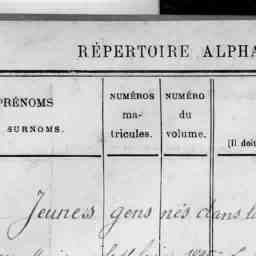 RÉPERTOIRE ALPHA
PRÉNOMS
SURNOMS.
NUMÉROS
ma-
tricules.
NUMÉRO
du
volume.
(Il doit
Jeunes gens nés dans l